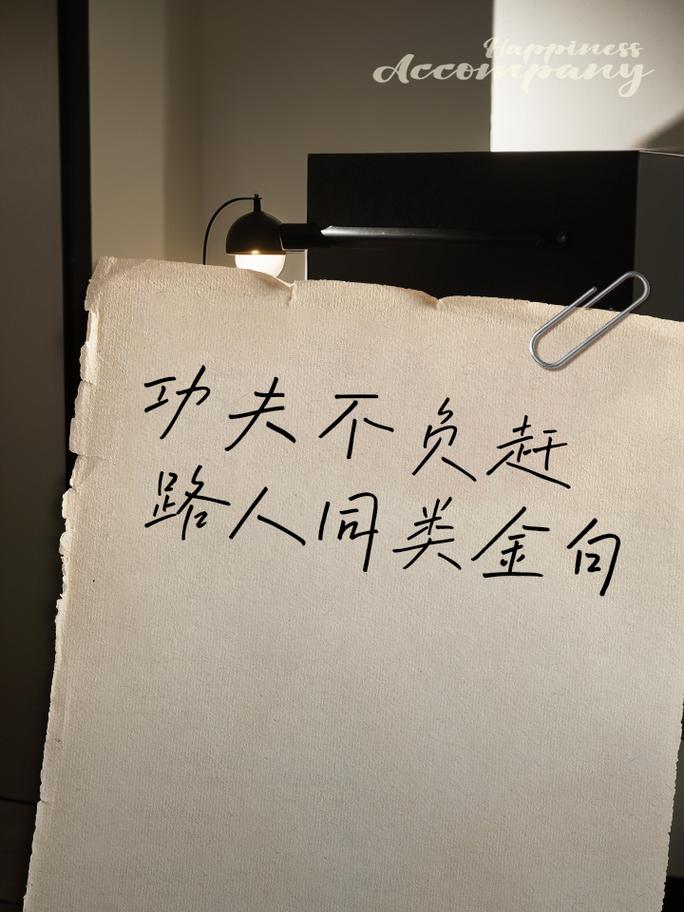 Happiness
Accompany
功夫不负赶
路人同类金句